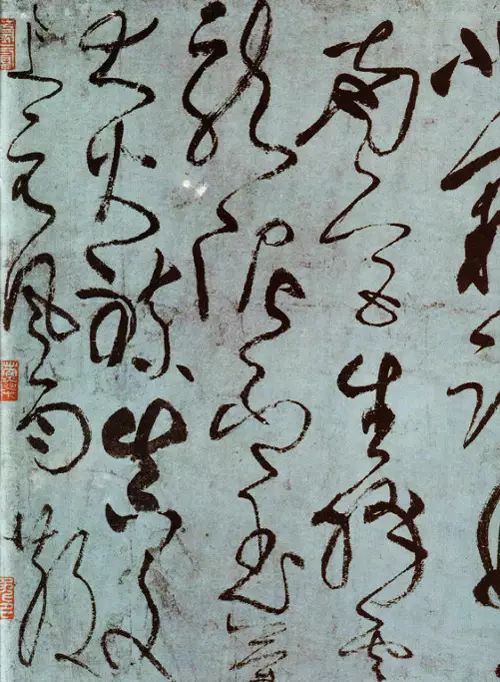 南宮生絳雲
龍泥印玉簡
大火煉真文
上元風雨散